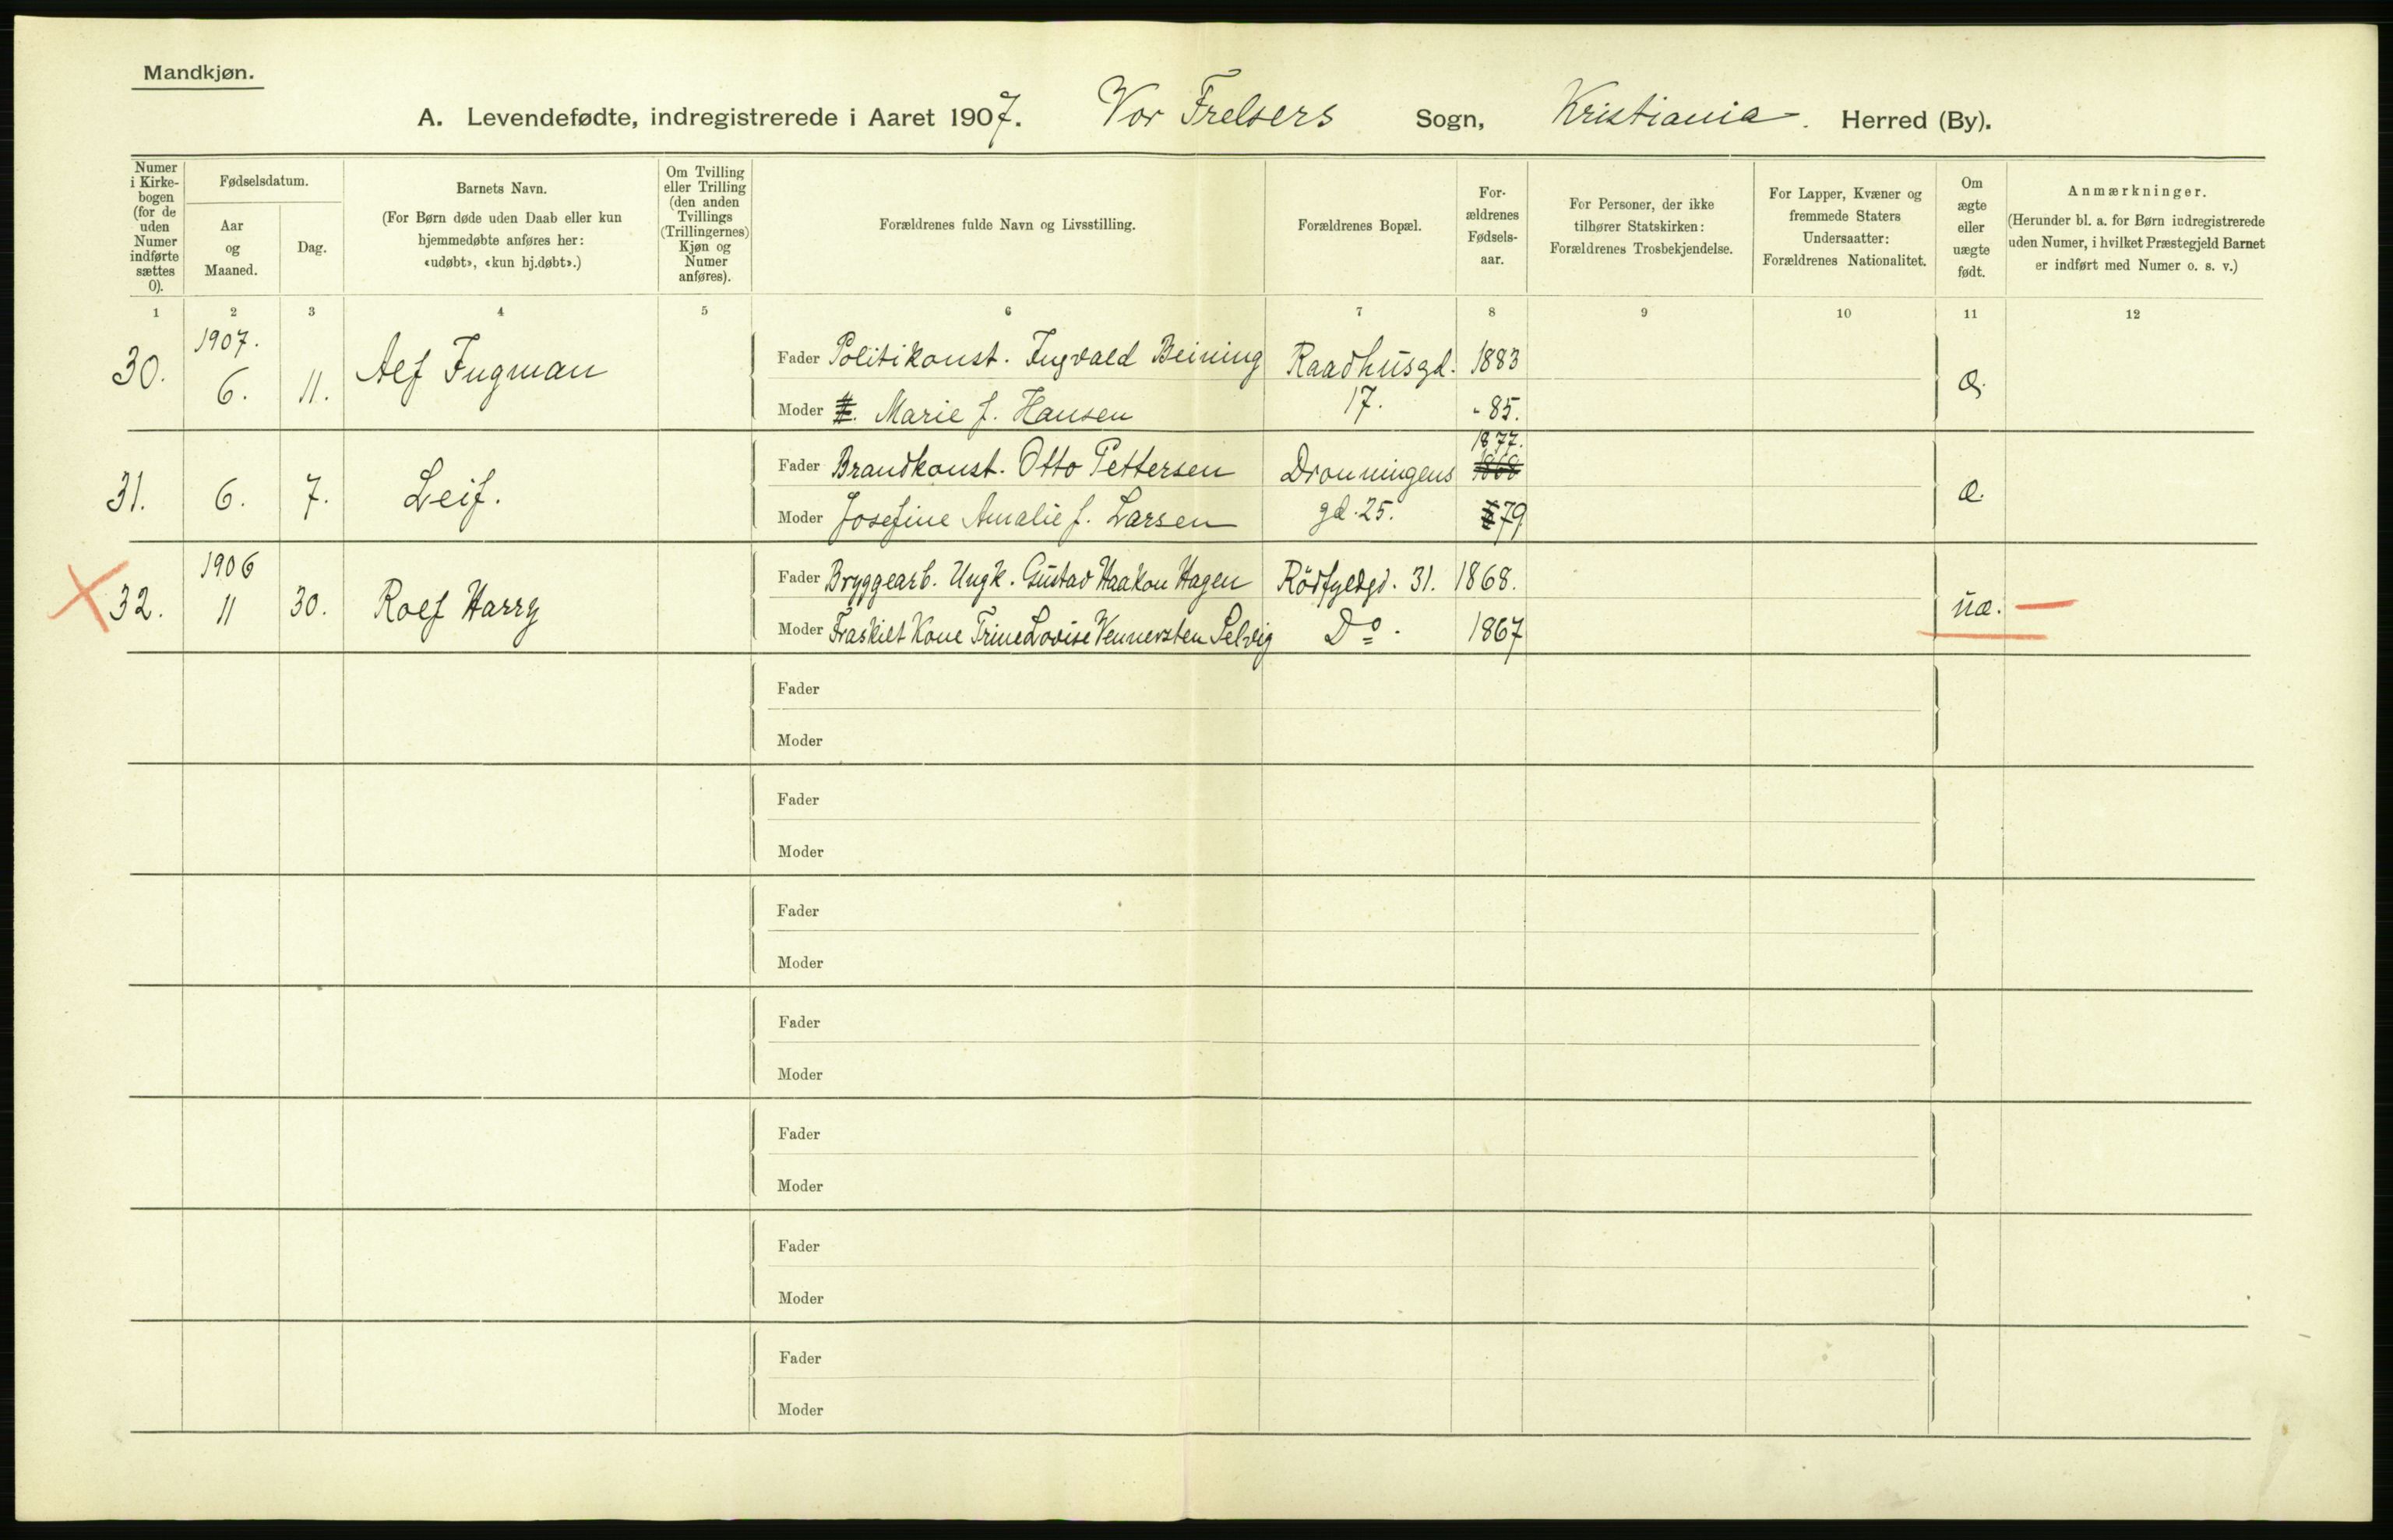 Mandkjøn.
A. Levendefødte, indregistrerede i Aaret 1907. Vor Frelsers Sogn, Kristiania. Herred (By).
Numer i Kirkebogen (for de uden Numer indførte sættes 0).
Fødselsdatum.
Aar og Maaned.
Dag.
Barnets Navn.
(For Børn døde uden Daab eller kun hjemmedøbte anføres her: «udøbt», «kun hj.døbt».)
Om Tvilling eller Trilling (den anden Tvillings (Trillingernes) Kjøn og Numer anføres).
Forældrenes fulde Navn og Livsstilling.
Forældrenes Bopæl.
Forældrenes Fødselsaar.
For Personer, der ikke tilhører Statskirken: Forældrenes Trosbekjendelse.
For Lapper, Kvæner og fremmede Staters Undersaatter: Forældrenes Nationalitet.
Om ægte eller uægte født.
Anmærkninger.
(Herunder bl. a. for Børn indregistrerede uden Numer, i hvilket Præstegjeld Barnet er indført med Numer o. s. v.)
1 2 3 4 5 6 7 8 9 10 11 12
30. 1907. 6. 11. Alf Ingman
Fader Politikonst. Ingvald Beining Raadhusgd. 1883
Moder Marie f. Hansen 17. - 85. æ.
31. 6. 7. Leif.
Fader Brandkonst. Otto Pettersen Dronningens 1877. 1868
Moder Josefine Amalie f. Larsen gd. 25. 79 æ.
32. 1906 11 30. Rolf Harry
Fader Bryggearb. Ungk. Gustav Haakon Hagen Rödfyldgd. 31. 1868.
Moder Fraskilt Kone Trine Lovise Vennersten Selvig Do. 1867 uæ. —
Fader
Moder
Fader
Moder
Fader
Moder
Fader
Moder
Fader
Moder
Fader
Moder
Fader
Moder